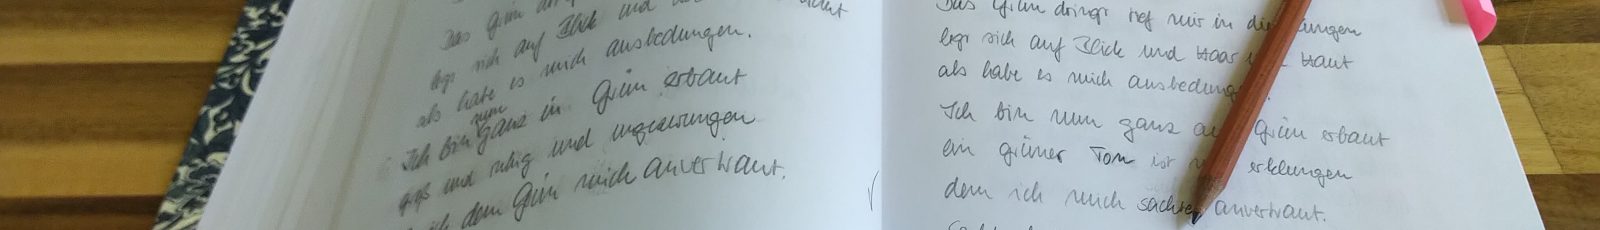 Das Grün
legt sich auf Blick und
als habe es mich ausbedungen.
nun
Ich bin ganz in Grün erbaut
groß und ruhig und ungezwungen
dem Grün mich anvertraut.
Das Grün dringt tief mir in die Lungen
legt sich auf Blick und Haar und Haut
als habe es mich ausbedungen.
Ich bin nun ganz aus Grün erbaut
ein grüner Ton ist erklungen
dem ich mich sachte anvertraut.